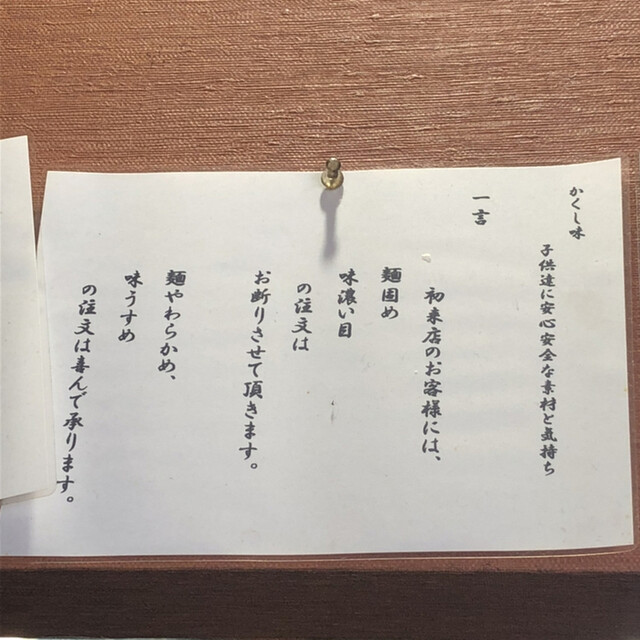 かくし味
子供達に安心安全な素材と気持ち
一言
初来店のお客様には、
麺固め
味濃い目
の注文は
お断りさせて頂きます。
麺やわらかめ、
味うすめ
の注文は喜んで承ります。